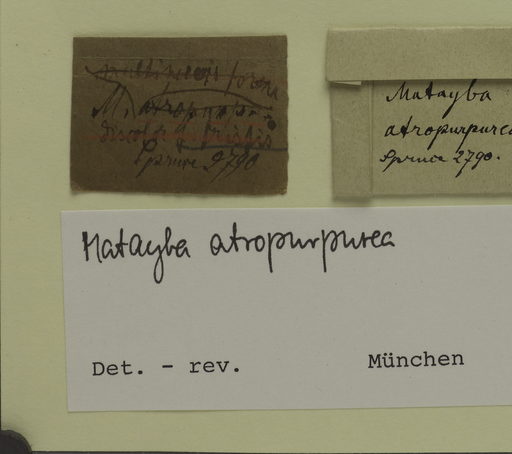 forma
M. atropurp.
discolor
Spruce 2790
Matayba
atropurpurea
Spruce 2790.
Matayba atropurpurea
Det. - rev. München